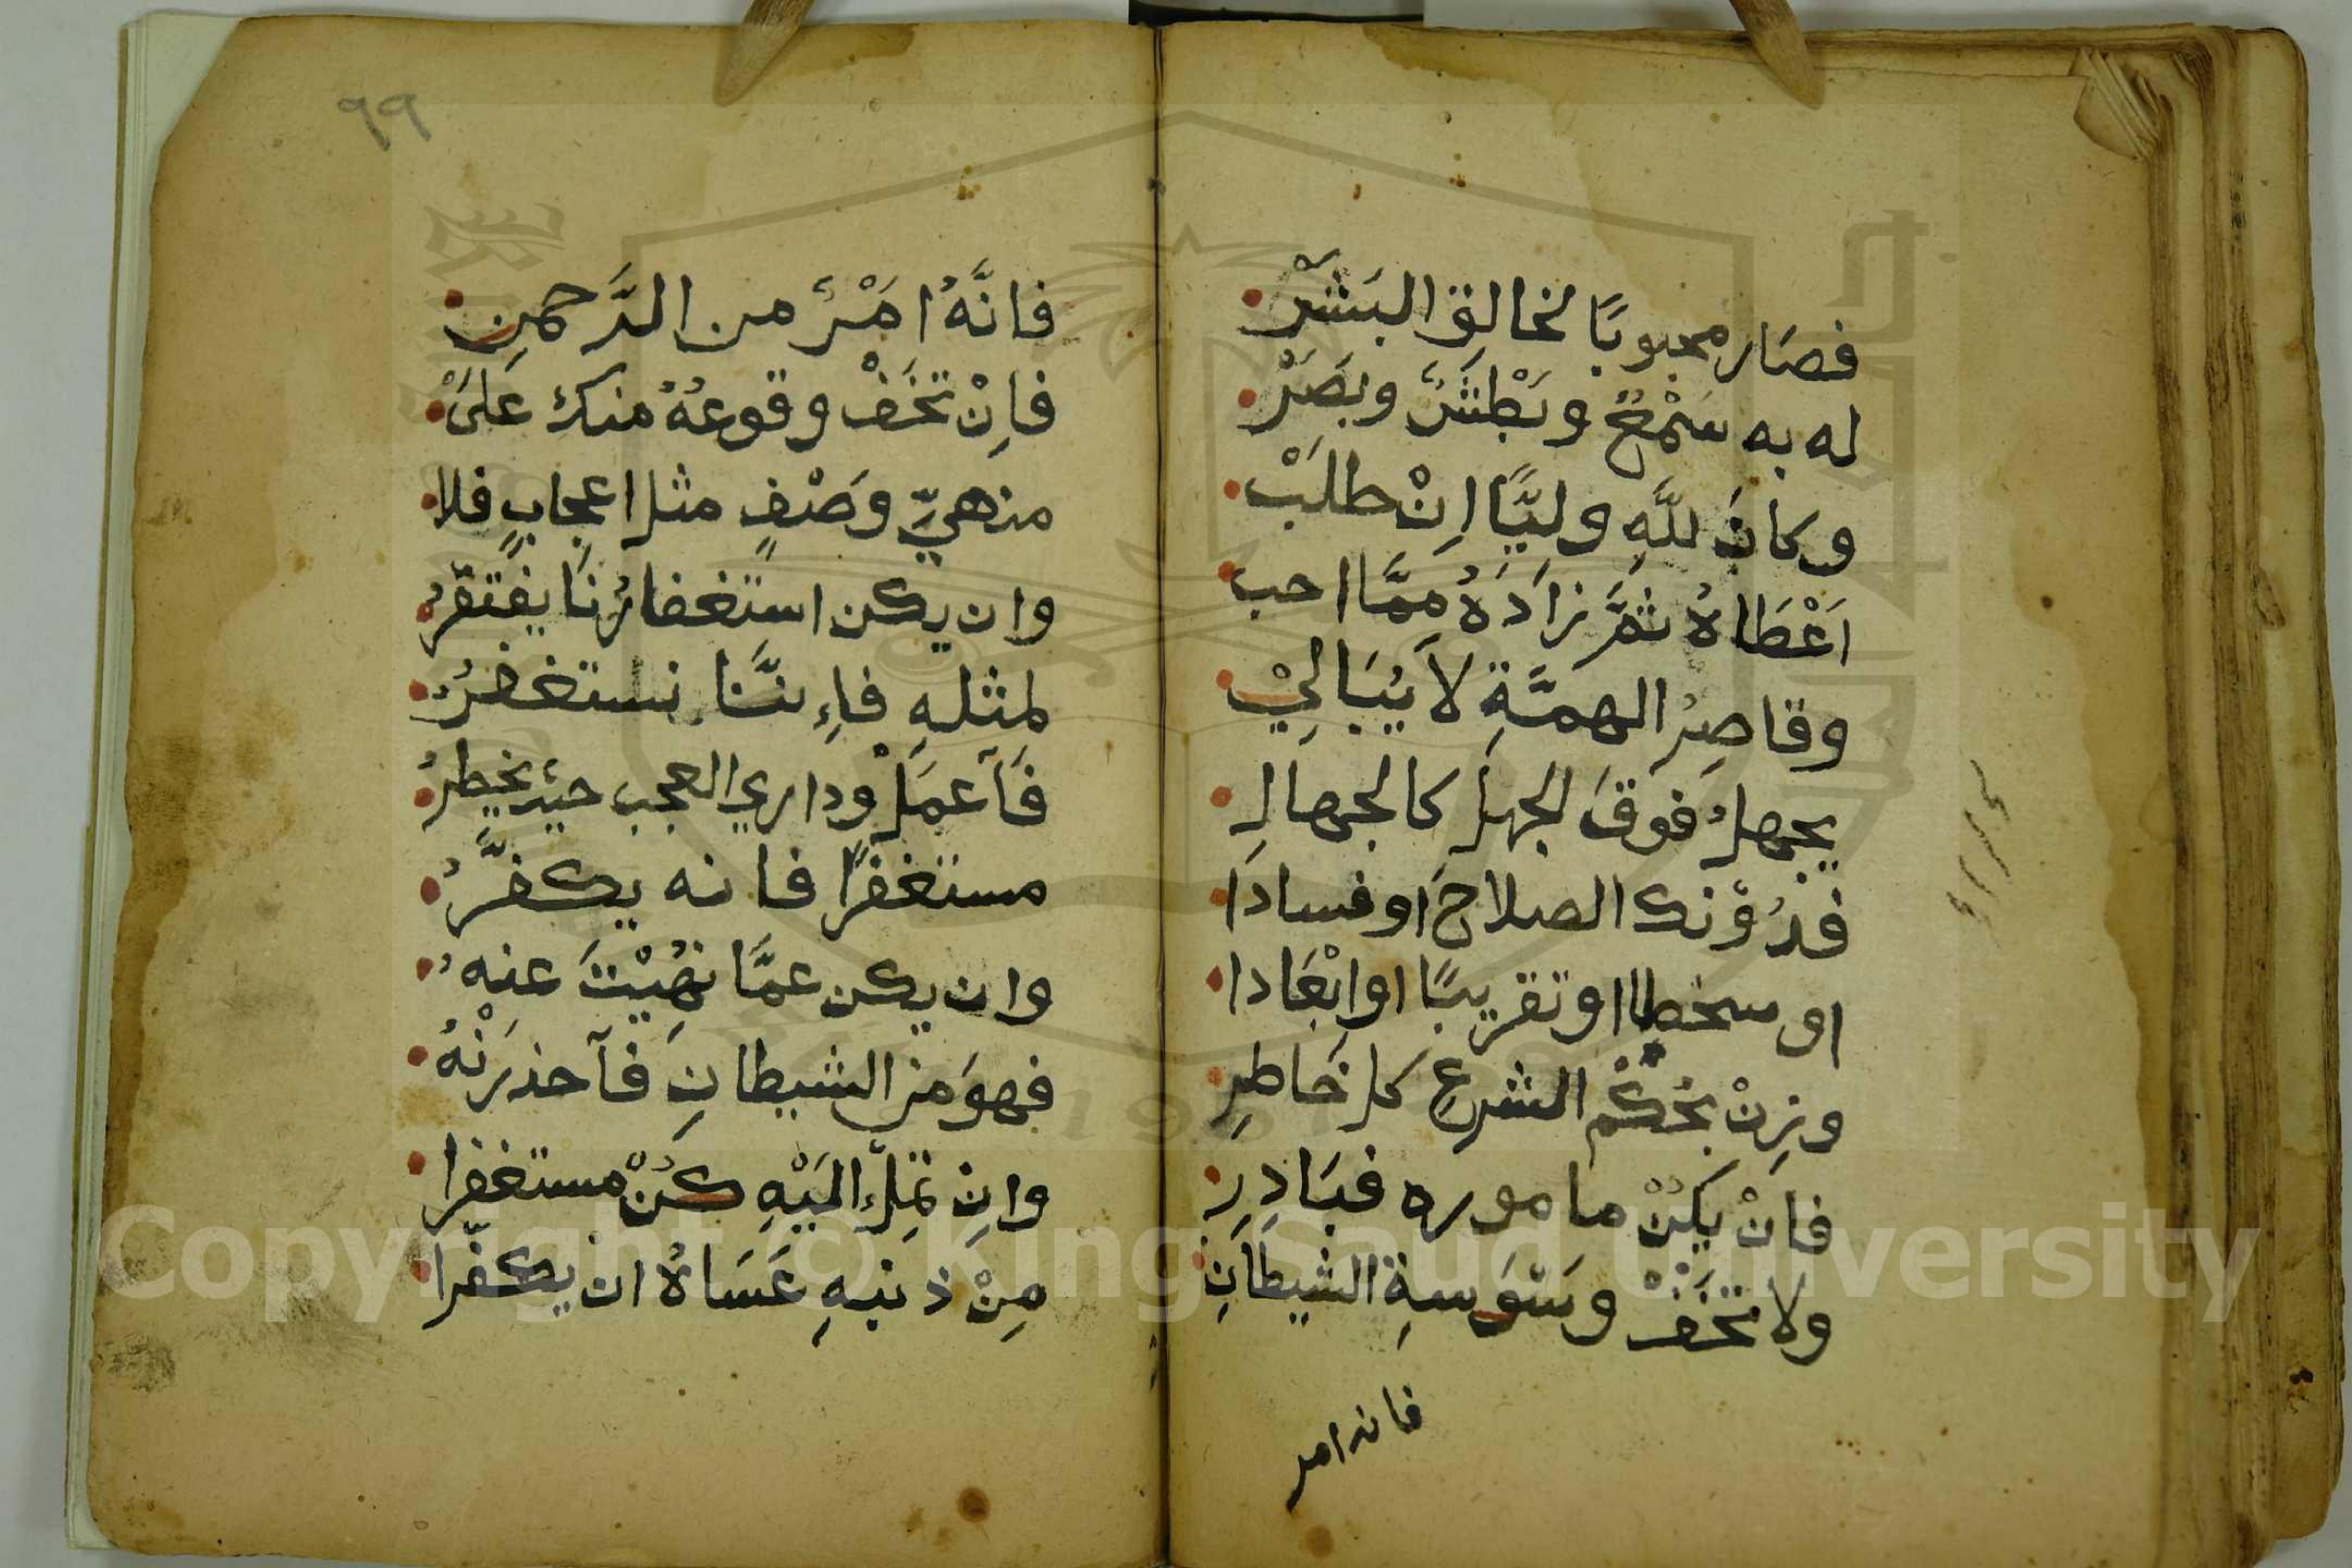 فصَار محبوبًا لخالق البَشَرْ
له به سَمْعٌ وبَطْشٌ وبَصَرْ
وكانَ للَّهِ وليًّا اِنْ طلَبْ
اَعْطَاهُ ثمَّ زادَهُ ممَّا احب
وقاصِرُ الهمَّةِ لاَ يُبَالِيْ
يجهلُ فَوقَ الجهلِ كالجهالِ
فدُوْنك الصلاحَ او فسادَا
او سخطا او تقريبًا او ابْعَادا
وزِنْ بحُكْم الشرعِ كل خَاطرِ
فانْ يكُنْ ماموره فبَادِرِ
ولا تخَفْ وسْوَسةِ الشيطَانِ
فانه امر
٩٩
فانَّهُ امْرٌ من الرَّحمنِ
فاِنْ تخَفْ وقوعهُ منك عَلىَ
منهيِّ وَصْفٍ مثل اعجابٍ فلا
وان يكن استغفارُنَا يفتقرُ
لمثلهِ فاِءنَّنا نستغفرُ
فَاَعمَلْ وداوي العجب حيث يخطِرُ
مستغفرًا فانه يكفّرُ
وان يكن عمَّا نهُيْتَ عنهُ
فهوَ من الشيطانِ فَاَحذرَنْهُ
وانِ تمِلْ اليْهِ كُنْ مستغفرا
مِنْ ذنبهِ عَسَاهُ ان يكفّرا
Copyright © King Saud University
1957